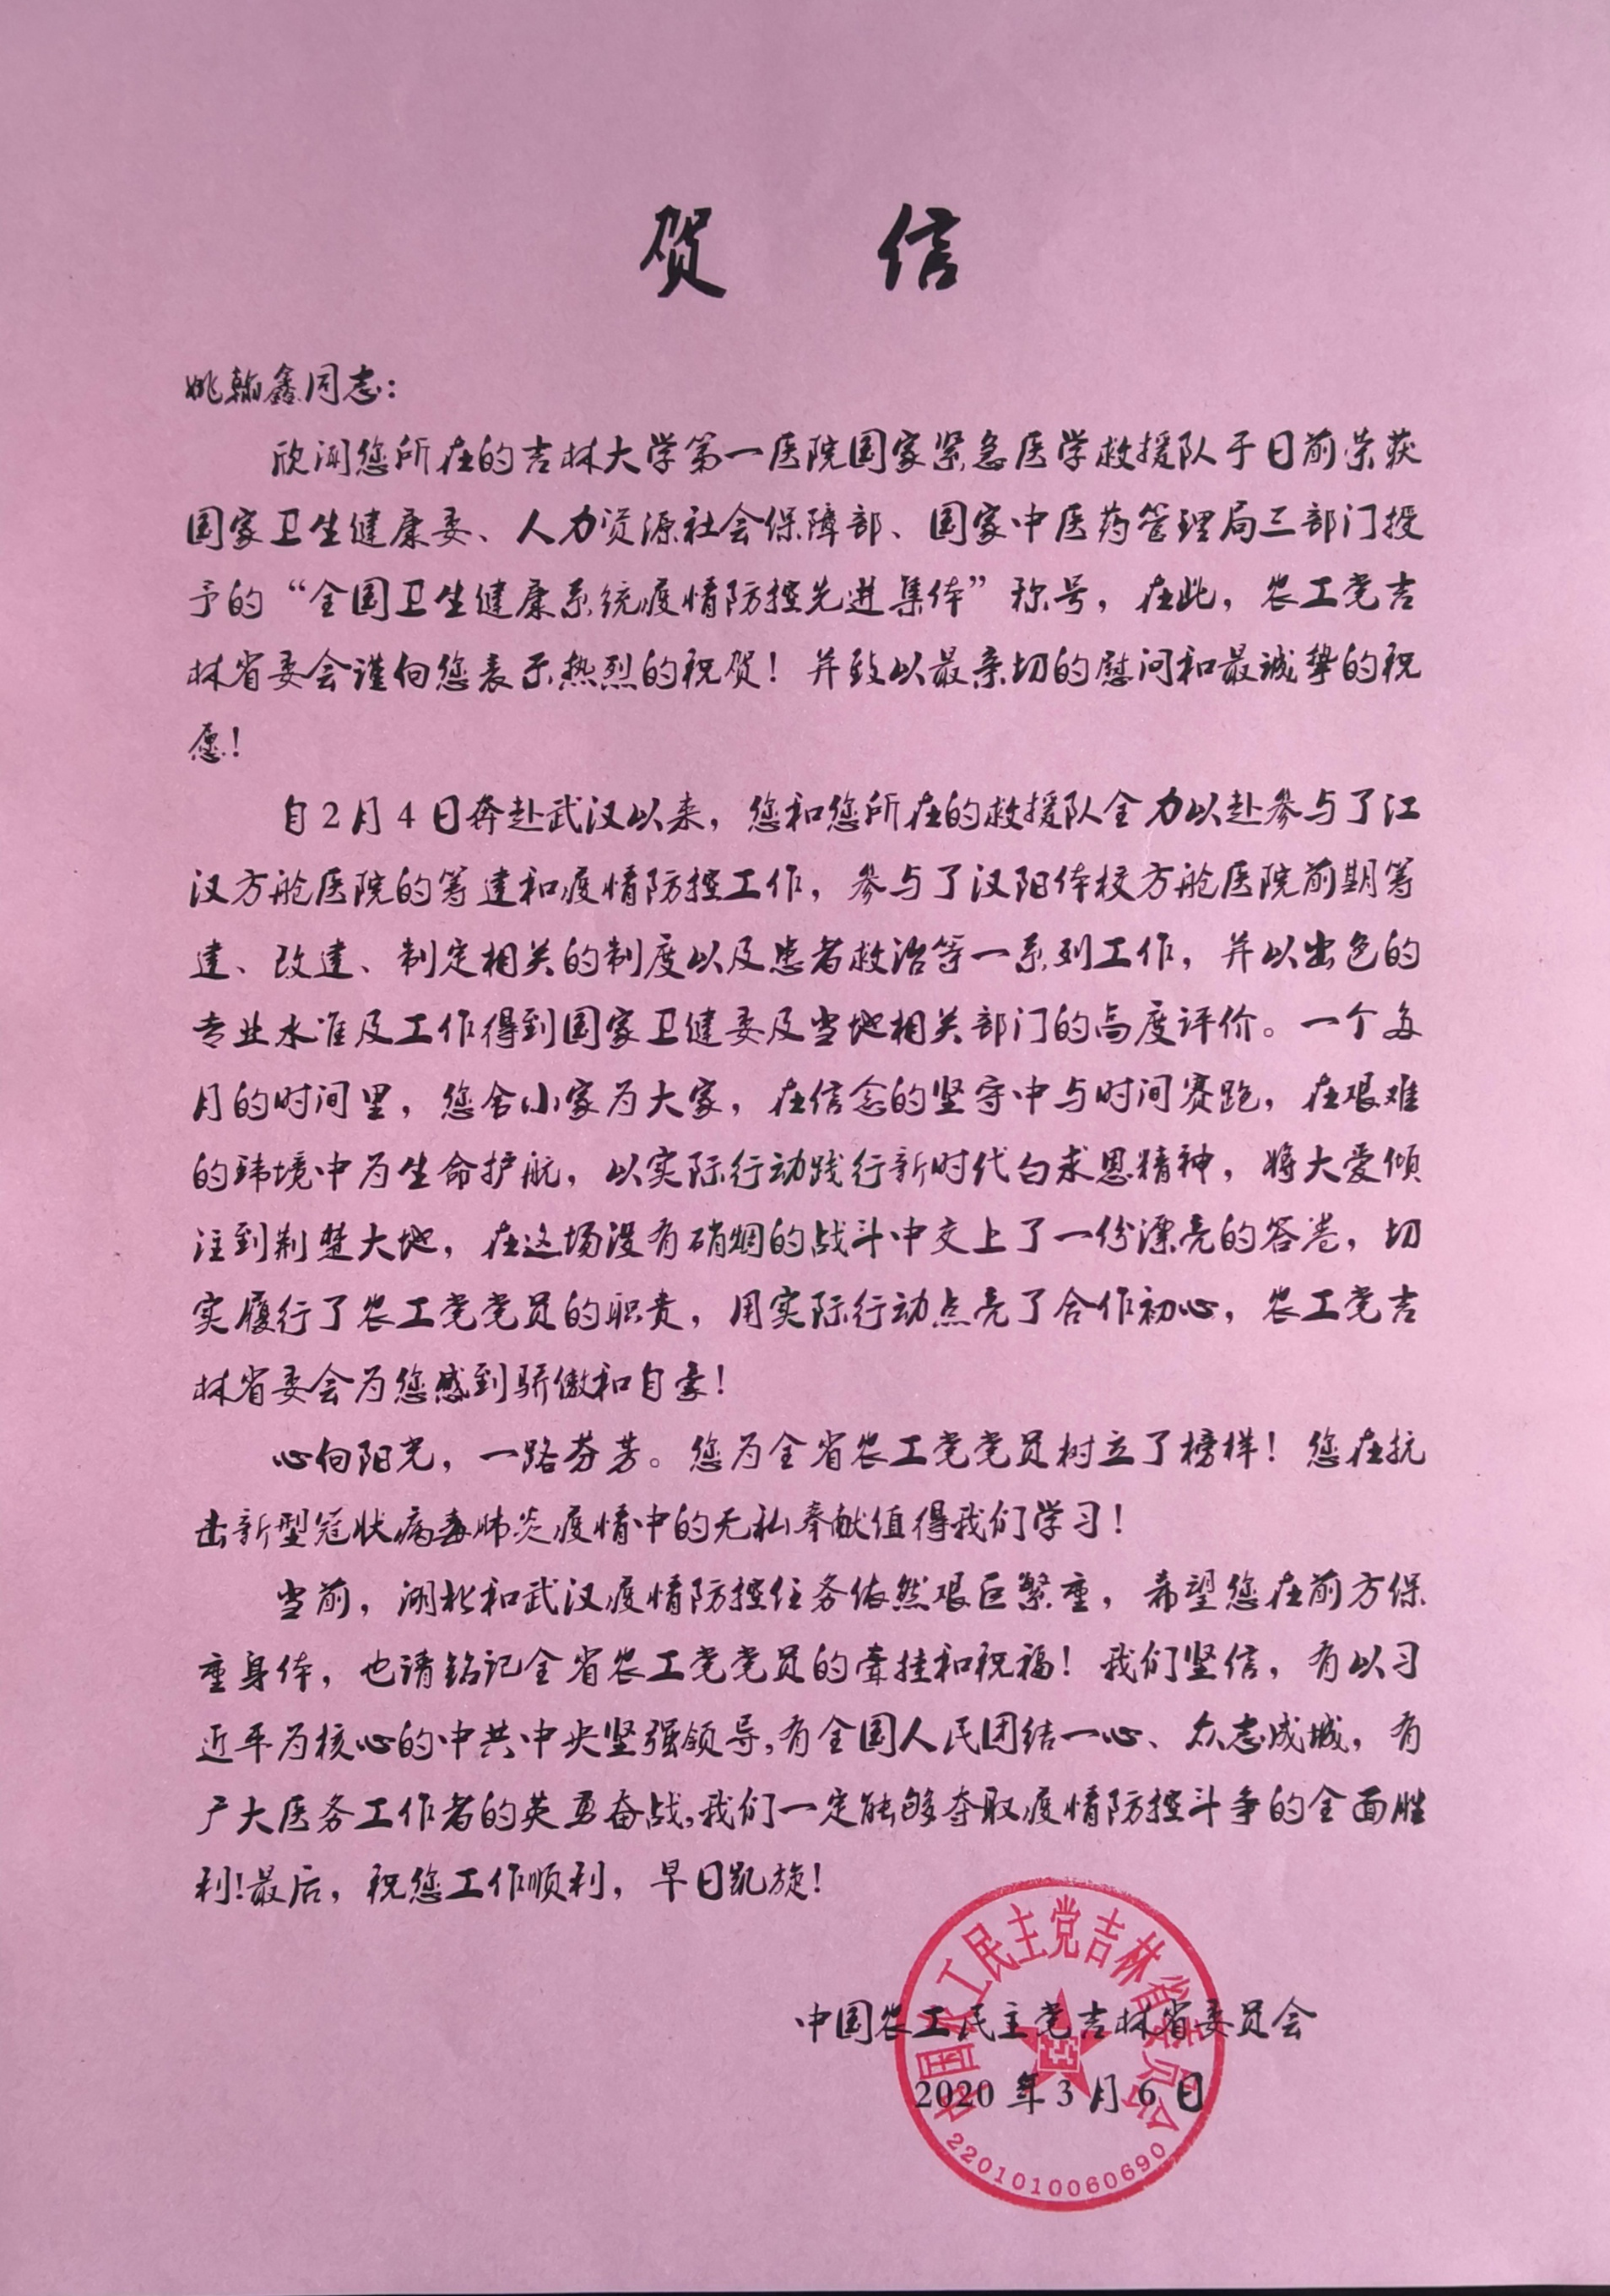 贺 信
姚翰鑫同志：
欣闻您所在的吉林大学第一医院国家紧急医学救援队于日前荣获
国家卫生健康委、人力资源社会保障部、国家中医药管理局三部门授
予的“全国卫生健康系统疫情防控先进集体”称号，在此，农工党吉
林省委会谨向您表示热烈的祝贺！并致以最亲切的慰问和最诚挚的祝
愿！
自2月4日奔赴武汉以来，您和您所在的救援队全力以赴参与了江
汉方舱医院的筹建和疫情防控工作，参与了汉阳体校方舱医院前期筹
建、改建、制定相关的制度以及患者救治等一系列工作，并以出色的
专业水准及工作得到国家卫健委及当地相关部门的高度评价。一个多
月的时间里，您舍小家为大家，在信念的坚守中与时间赛跑，在艰难
的环境中为生命护航，以实际行动践行新时代白求恩精神，将大爱倾
注到荆楚大地，在这场没有硝烟的战斗中交上了一份漂亮的答卷，切
实履行了农工党党员的职责，用实际行动点亮了合作初心，农工党吉
林省委会为您感到骄傲和自豪！
心向阳光，一路芬芳。您为全省农工党党员树立了榜样！您在抗
击新型冠状病毒肺炎疫情中的无私奉献值得我们学习！
当前，湖北和武汉疫情防控任务依然艰巨繁重，希望您在前方保
重身体，也请铭记全省农工党党员的牵挂和祝福！我们坚信，有以习
近平为核心的中共中央坚强领导，有全国人民团结一心、众志成城，有
广大医务工作者的英勇奋战，我们一定能够夺取疫情防控斗争的全面胜
利！最后，祝您工作顺利，早日凯旋！
中国农工民主党吉林省委员会
2020年3月6日
中国农工民主党吉林省委员会
2201010060690